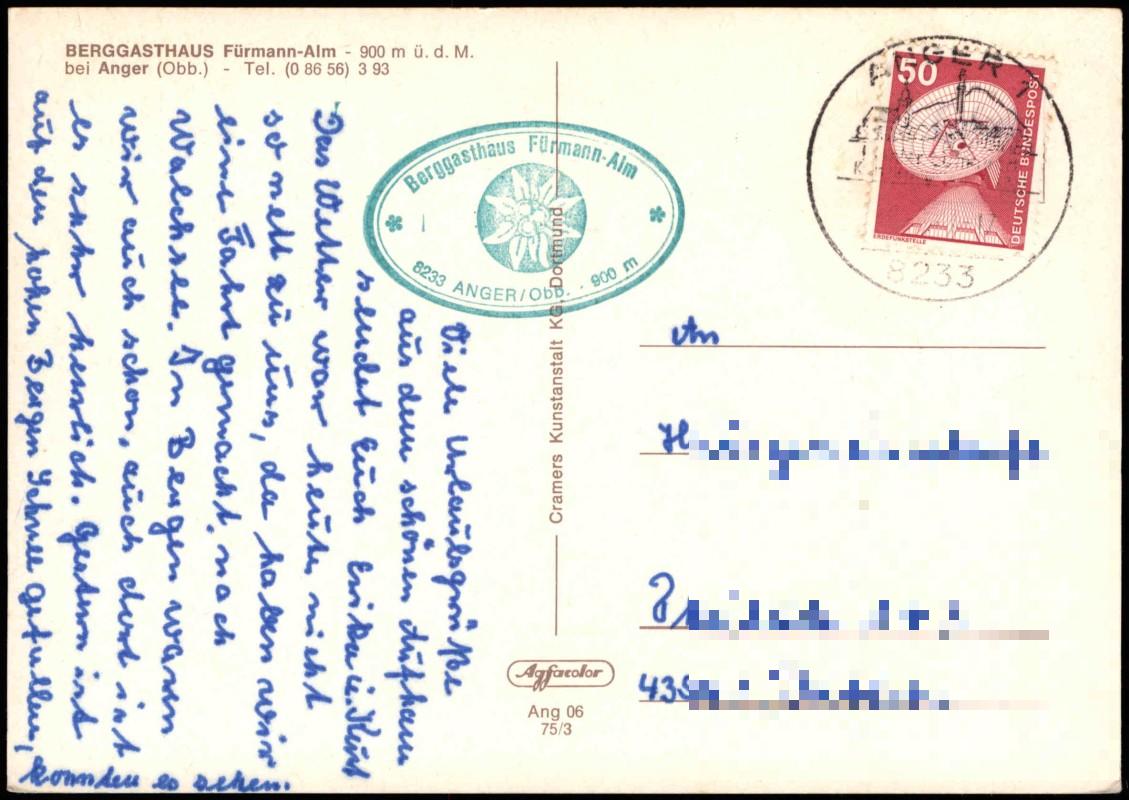 BERGGASTHAUS Fürmann-Alm - 900 m ü. d. M.
bei Anger (Obb.) - Tel. (0 86 56) 3 93
Berggasthaus Fürmann-Alm
8233 ANGER/Obb. · 900 m
ANGER 1
8233
50
DEUTSCHE BUNDESPOST
ERDEFUNKSTELLE
Viele Urlaubsgrüße
aus dem schönen
sendet Euch Erika u. Kurt
Das Wetter war heute nicht
so nett zu uns, da haben wir
eine Fahrt gemacht nach
Walchsee. In Bergen waren
wir auch schon, auch dort ist
es sehr herrlich. Gestern ist
auf den hohen Bergen Schnee gefallen,
konnten es sehen.
Cramers Kunstanstalt KG, Dortmund
An
435
Agfacolor
Ang 06
75/3